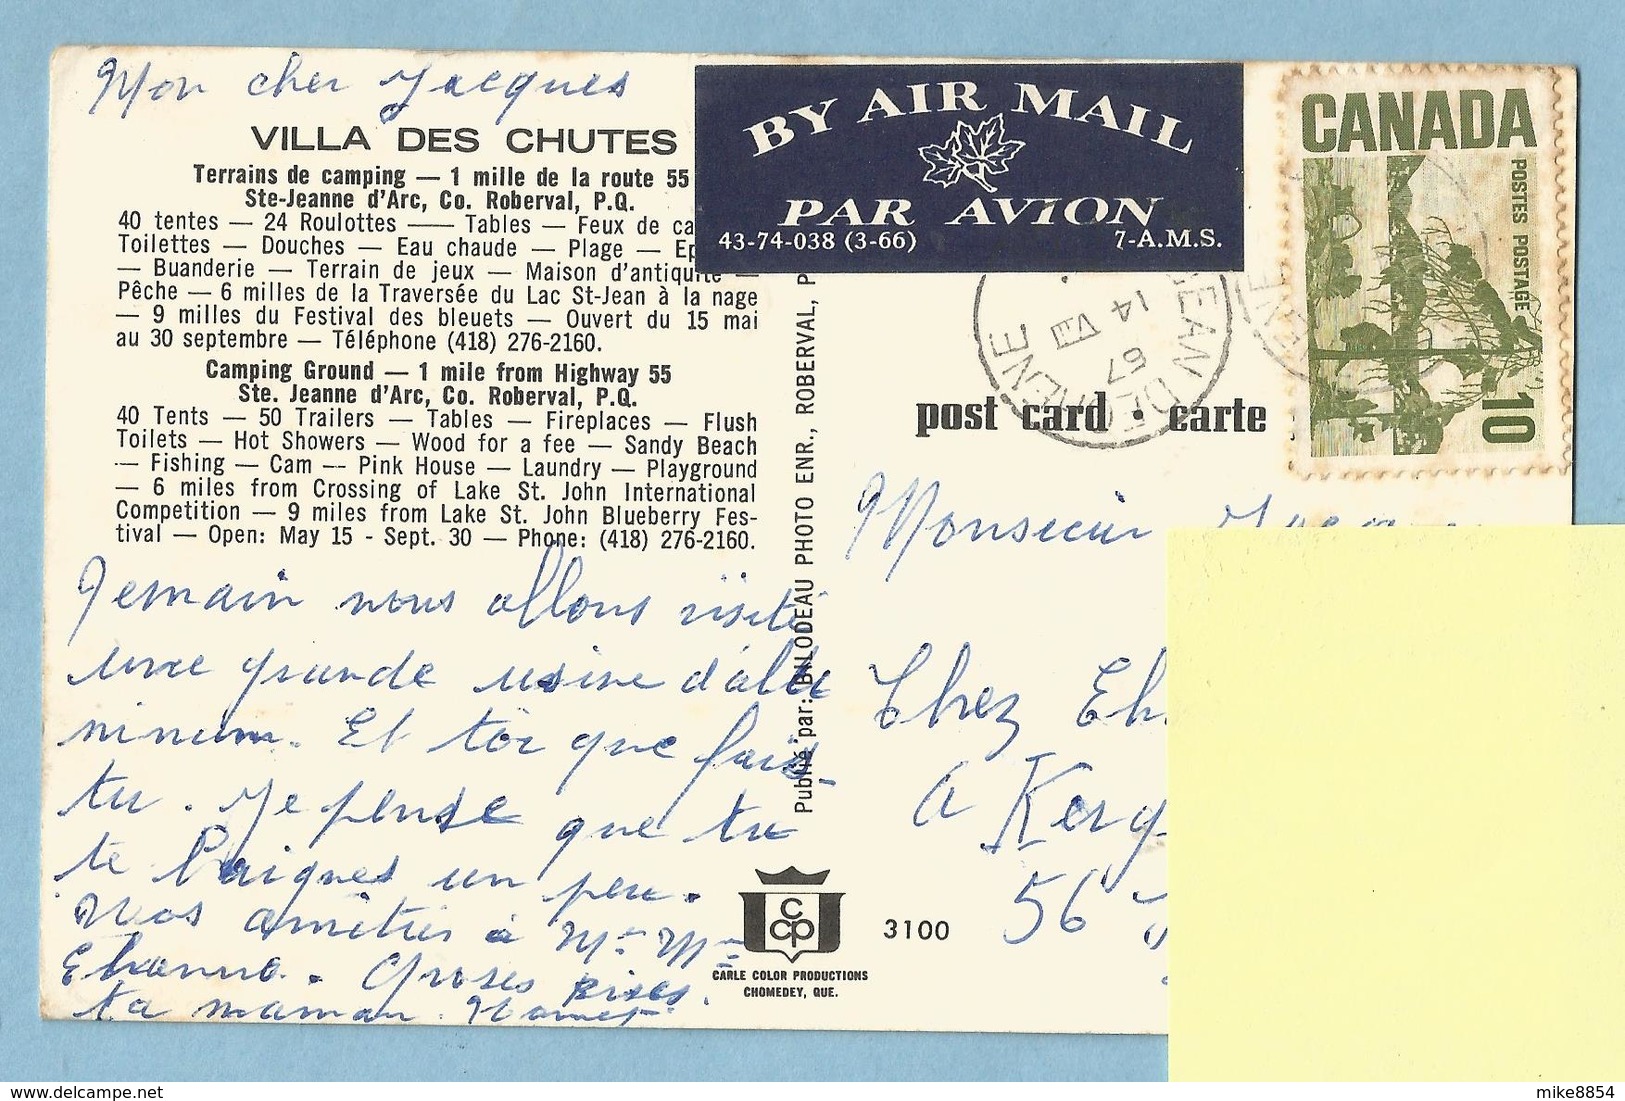 Mon cher Jacques
VILLA DES CHUTES
Terrains de camping — 1 mille de la route 55
Ste-Jeanne d'Arc, Co. Roberval, P.Q.
40 tentes — 24 Roulottes —— Tables — Feux de ca
Toilettes — Douches — Eau chaude — Plage — Ep
— Buanderie — Terrain de jeux — Maison d'antiquité —
Pêche — 6 milles de la Traversée du Lac St-Jean à la nage
— 9 milles du Festival des bleuets — Ouvert du 15 mai
au 30 septembre — Téléphone (418) 276-2160.
Camping Ground — 1 mile from Highway 55
Ste. Jeanne d'Arc, Co. Roberval, P.Q.
40 Tents — 50 Trailers — Tables — Fireplaces — Flush
Toilets — Hot Showers — Wood for a fee — Sandy Beach
— Fishing — Cam — Pink House — Laundry — Playground
— 6 miles from Crossing of Lake St. John International
Competition — 9 miles from Lake St. John Blueberry Fes-
tival — Open: May 15 - Sept. 30 — Phone: (418) 276-2160.
Demain nous allons visité
une grande usine d'alu
minium. Et toi que fais-
tu. Je pense que tu
te baignes un peu.
Nos amitiés à Mr Mme
Ehanno. Grosses bises.
ta maman
Publié par: BILODEAU PHOTO ENR., ROBERVAL, P
BY AIR MAIL
PAR AVION
43-74-038 (3-66) 7-A.M.S.
CANADA
POSTES POSTAGE
10
14 VIII
67
post card • carte
Monsieur Jacques
Chez Eh
a Kerg
56
CCP
3100
CARLE COLOR PRODUCTIONS
CHOMEDEY, QUE.
mike8854